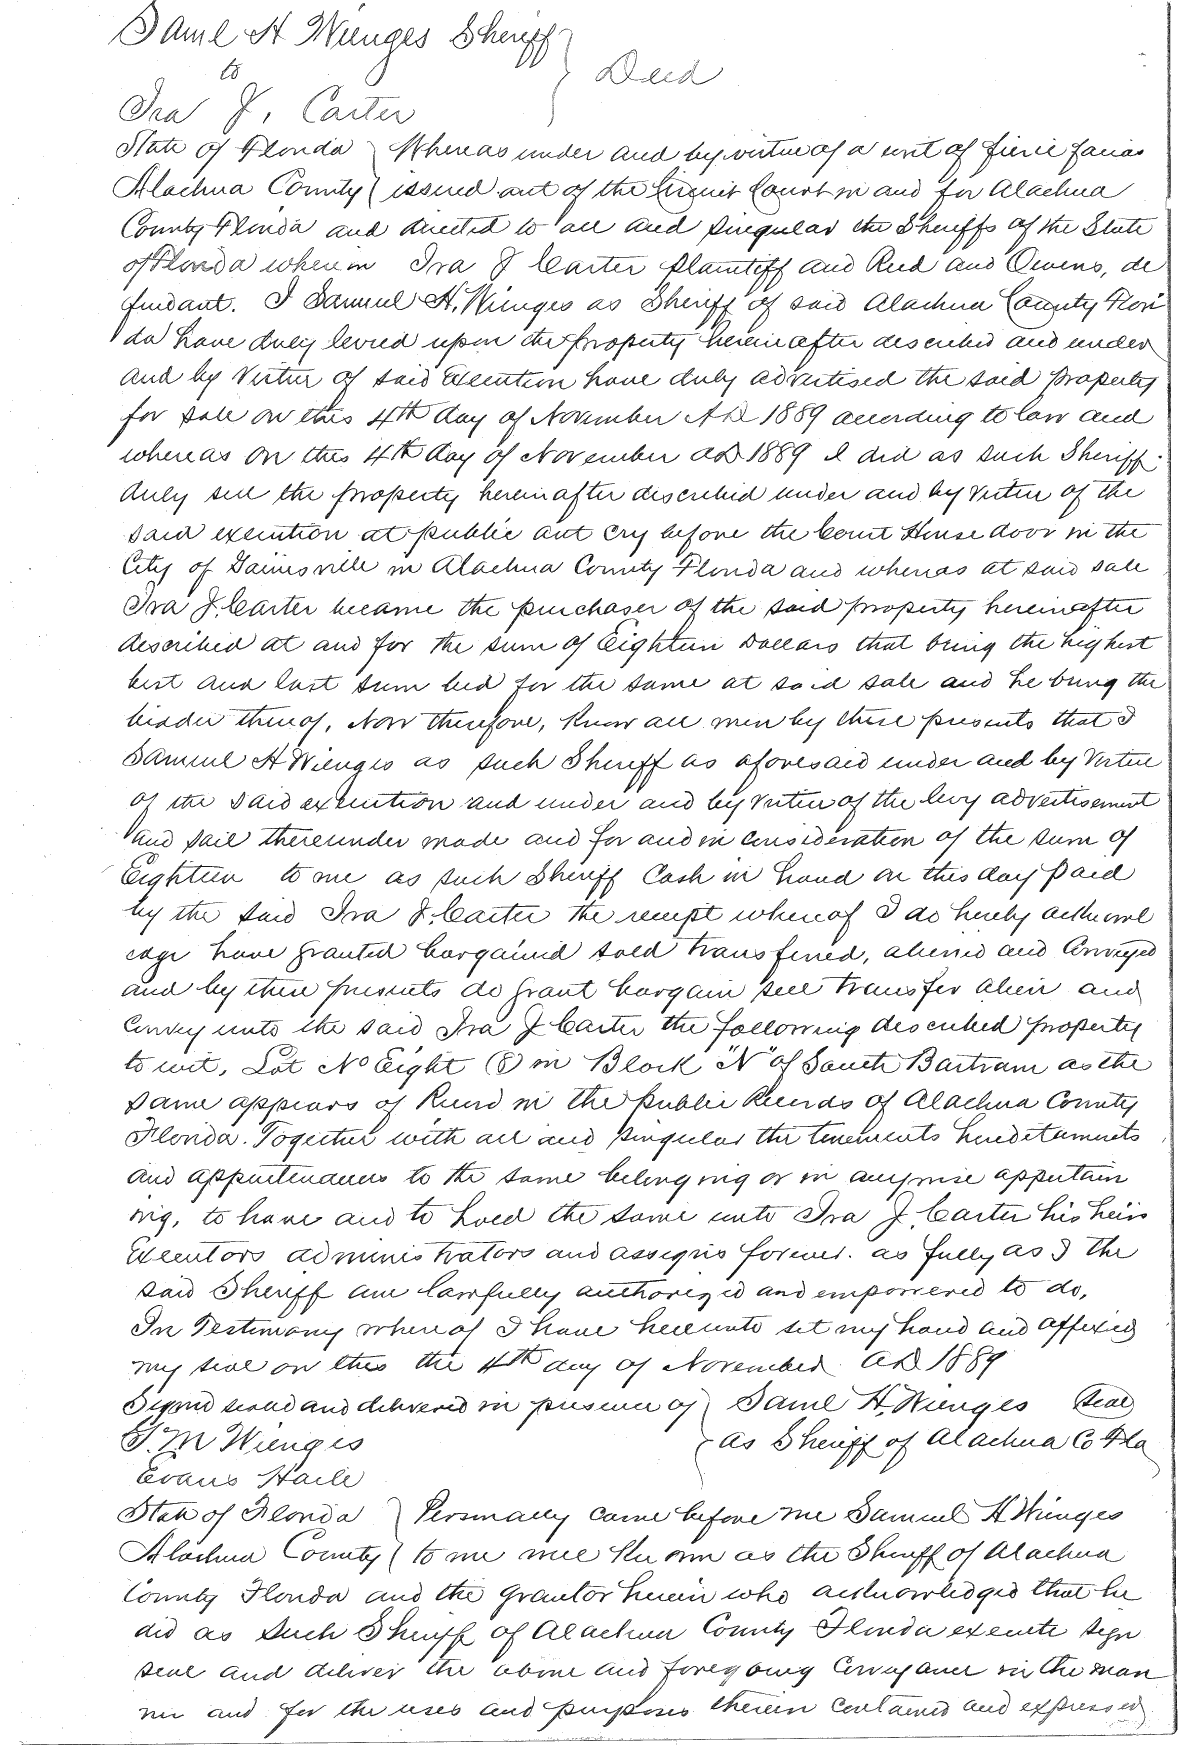 Saml H Wienges Sheriff
to
Deed
Ira J. Carter
State of Florida Whereas under and by virtue of a writ of fierie facias
Alachua County issued out of the Circuit Court in and for Alachua
County Florida and directed to all and singular the Sheriffs of the State
of Florida wherein Ira J Carter plaintiff and Reed and Owens, de
fendant. I Samuel H. Wienges as Sheriff of said Alachua County Flori
da have duly levied upon the property hereinafter described and under
and by Virtue of said Execution have duly advertised the said property
for sale on this 4th day of November AD 1889 according to law and
whereas on this 4th day of November AD 1889 I did as such Sheriff
duly sell the property hereinafter discribed under and by virtue of the
said execution at public out cry before the Court House door in the
City of Gainesville in Alachua County Florida and whereas at said sale
Ira J. Carter became the purchaser of the said property hereinafter
described at and for the sum of Eighteen Dollars that being the highest
best and last sum bid for the same at said sale and he being the
bidder thereof, Now therefore, Know all men by these presents that I
Samuel H Wienges as such Sheriff as aforesaid under and by Virtue
of the said execution and under and by virtue of the levy advertisement
and sale thereunder made and for and in consideration of the sum of
Eighteen to me as such Sheriff Cash in hand on this day paid
by the said Ira J. Carter the receipt whereof I do hereby acknowl
edge have granted bargained sold transferred, aliened and Conveyed
and by these presents do grant bargain sell transfer alien and
Convey unto the said Ira J Carter the following described property
to wit, Lot No Eight (8) in Block "N" of South Bartram as the
same appears of Record in the public Records of Alachua County
Florida. Together with all and singular the tenements hereditaments
and appurtenances to the same belonging or in anywise appertain
ing, to have and to hold the same unto Ira J. Carter his heirs
Executors administrators and assigns forever. as fully as I the
said Sheriff am lawfully authorized and empowered to do,
In Testimony whereof I have hereunto set my hand and affixed
my seal on this the 4th day of November AD 1889
Signed sealed and delivered in presence of Saml H. Wienges Seal
S. M Wienges as Sheriff of Alachua Co Fla
Evans Haile
State of Florida Personally came before me Samuel H Wienges
Alachua County to me well Known as the Sheriff of Alachua
County Florida and the grantor herein who acknowledged that he
did as such Sheriff of Alachua County Florida execute sign
seal and deliver the above and foregoing Conveyance in the man
ner and for the uses and purposes therein contained and expressed